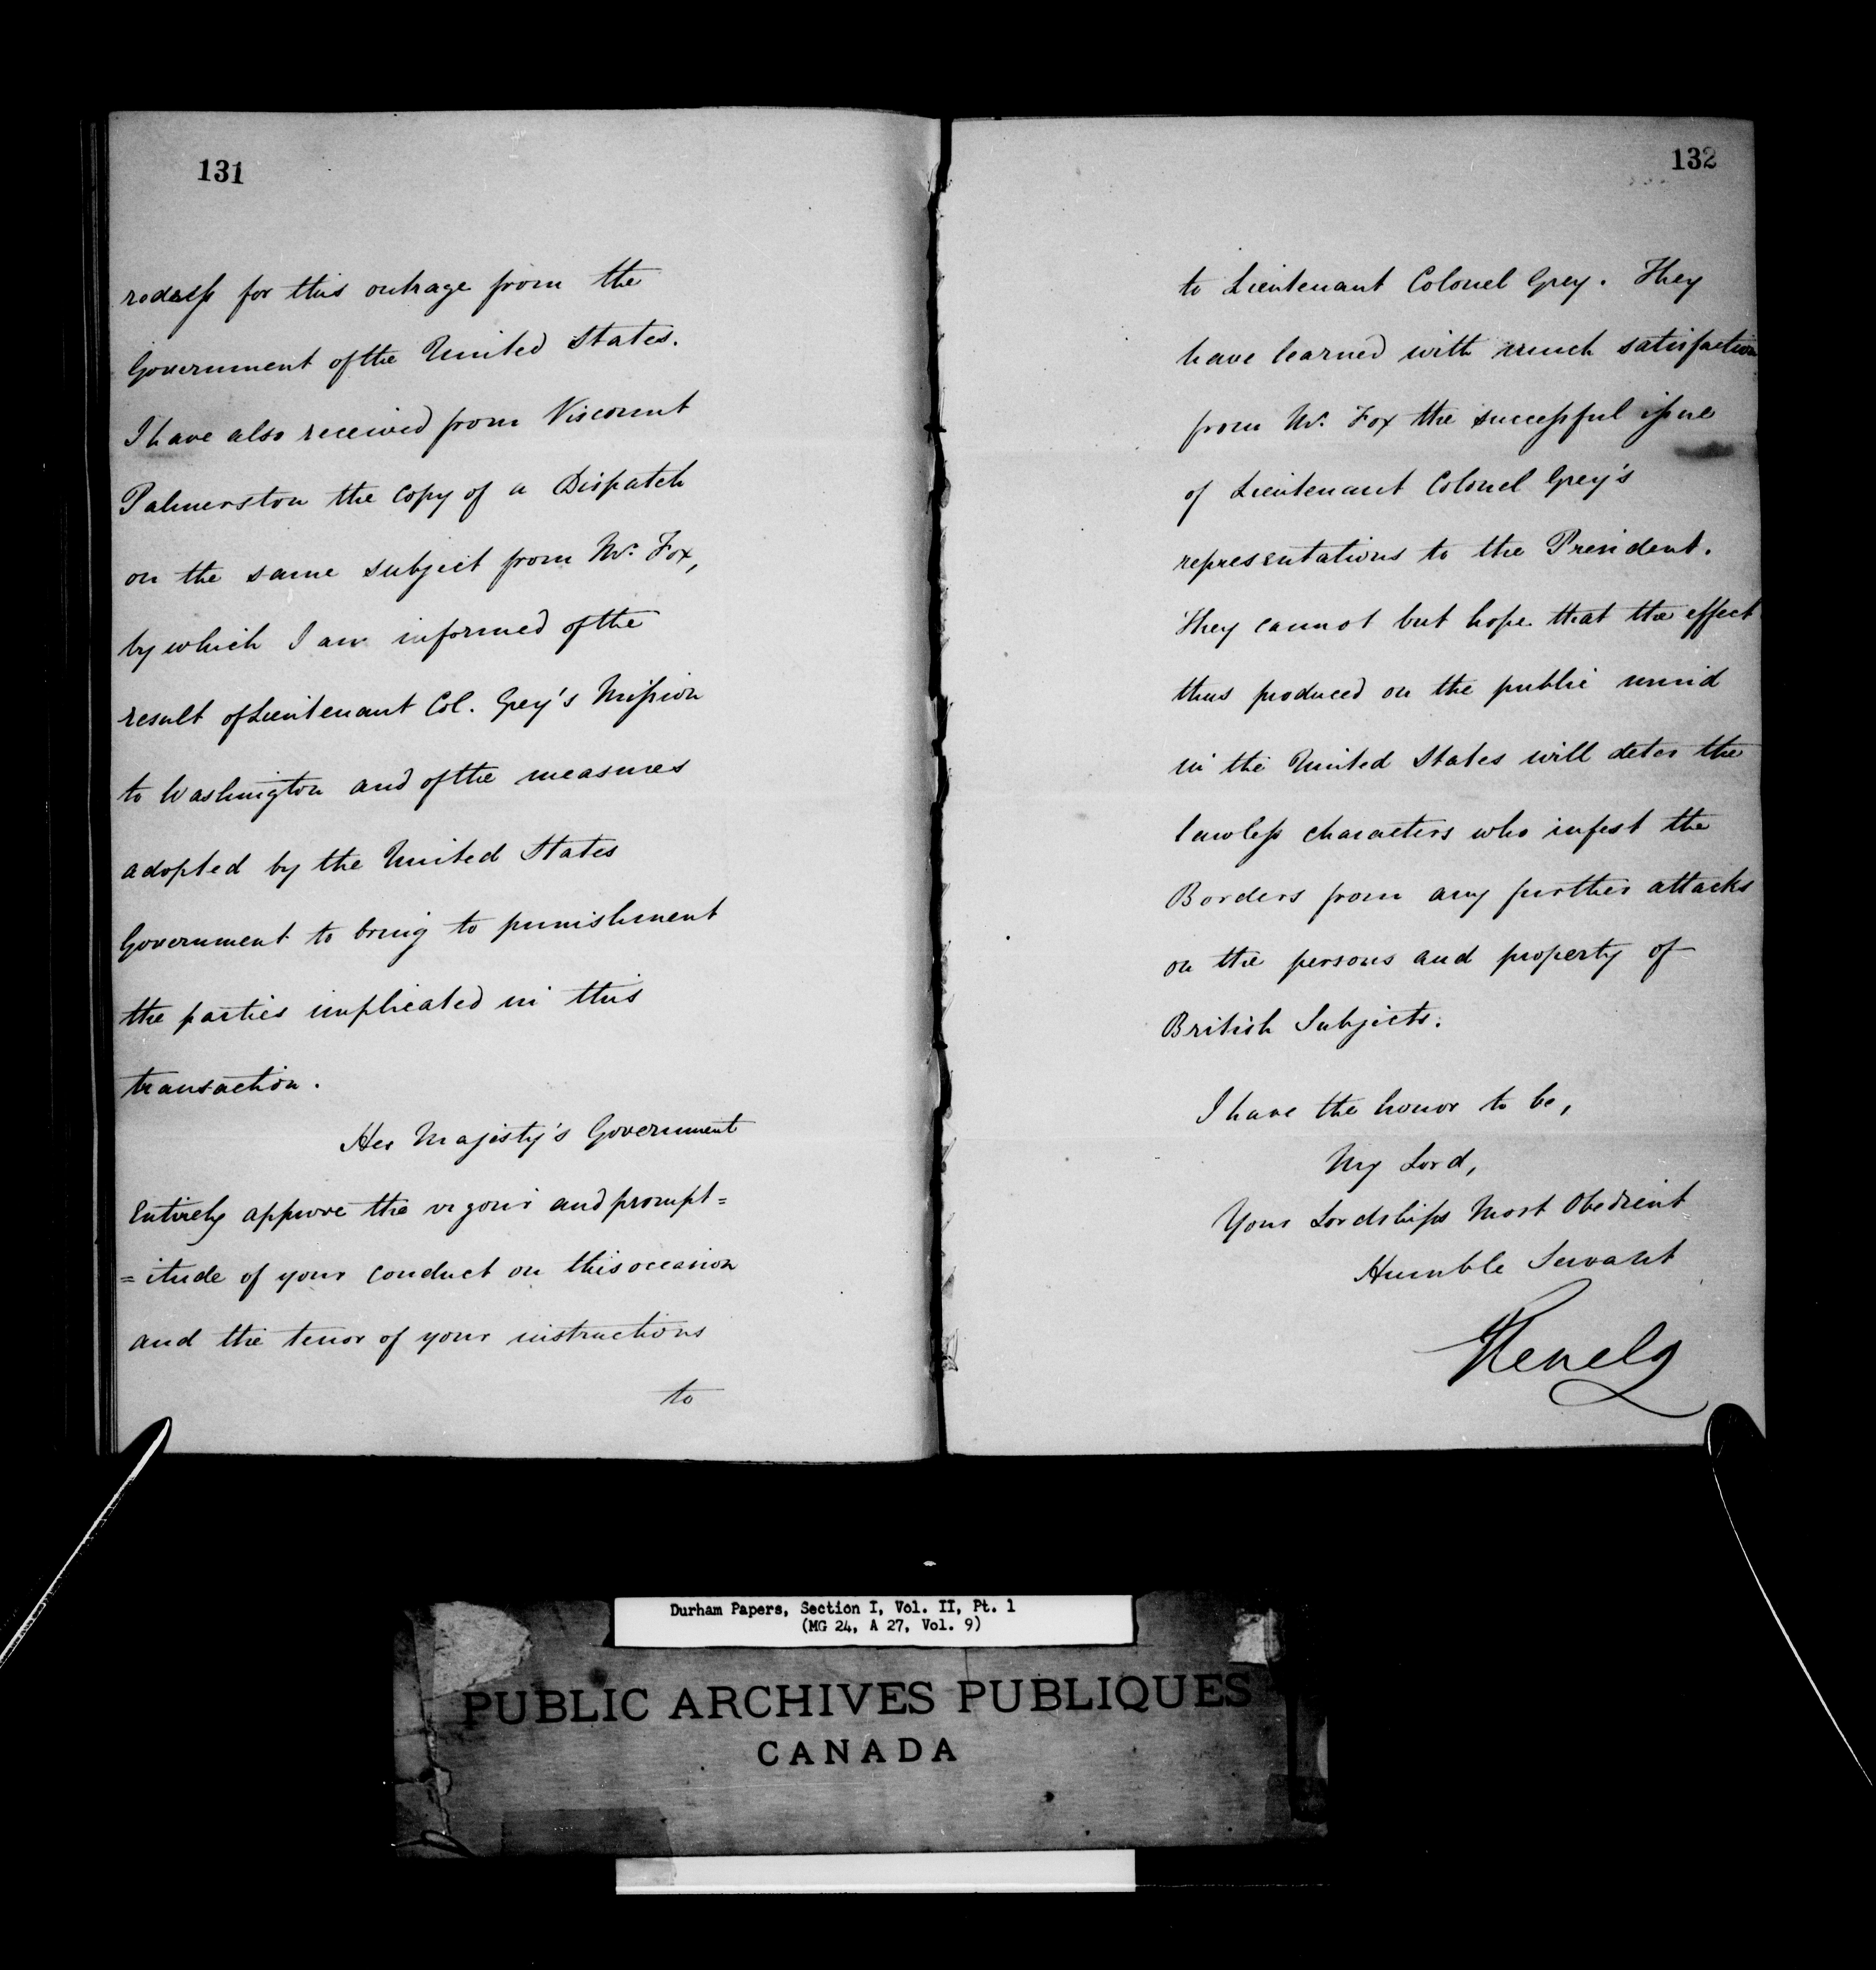 131
redress for this outrage from the
Government of the United States.
I have also received from Viscount
Palmerston the Copy of a Dispatch
on the same subject from Mr. Fox,
by which I am informed of the
result of Lieutenant Col. Grey's Mission
to Washington and of the measures
adopted by the United States
Government to bring to punishment
the parties implicated in this
transaction.
Her Majesty's Government
Entirely approve the vigour and prompt=
=itude of your conduct on this occasion
and the tenor of your instructions
to
132
to Lieutenant Colonel Grey. They
have learned with much satisfaction
from Mr. Fox the successful issue
of Lieutenant Colonel Grey's
representations to the President.
They cannot but hope that the effect
thus produced on the public mind
in the United States will deter the
lawless characters who infest the
Borders from any further attacks
on the persons and property of
British Subjects.
I have the honor to be,
My Lord,
Your Lordships Most Obedient
Humble Servant
Glenelg
Durham Papers, Section I, Vol. II, Pt. 1
(MG 24, A 27, Vol. 9)
PUBLIC ARCHIVES PUBLIQUES
CANADA